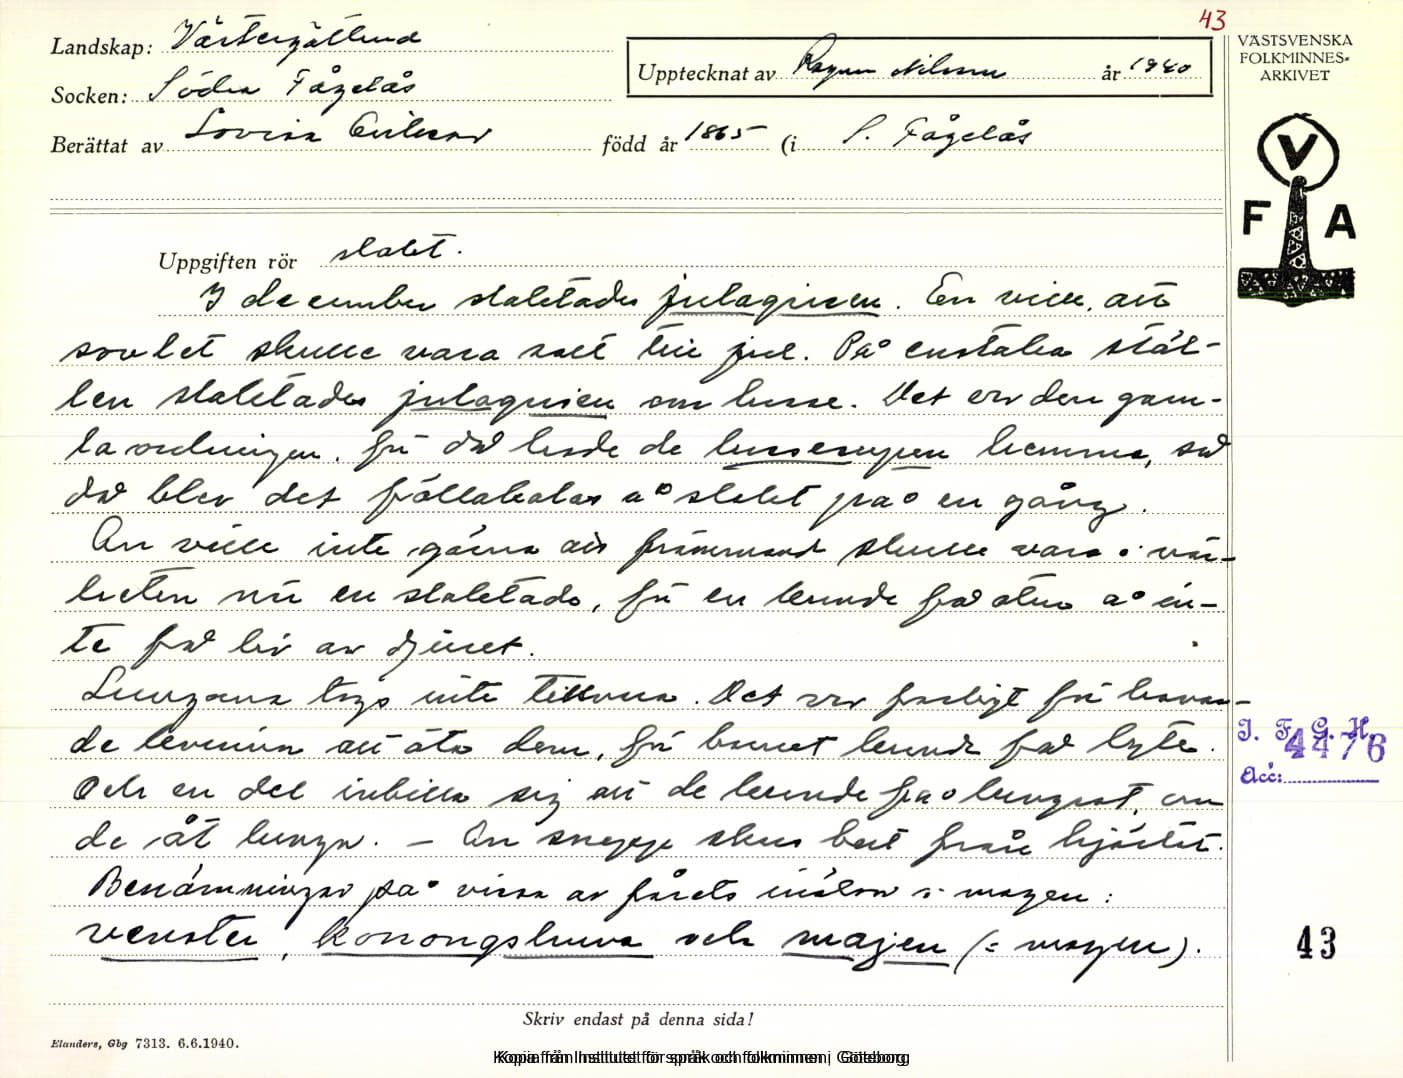 43
Landskap: Västergötland
Socken: Södra Fågelås
Berättat av Lovisa
Upptecknat av Ragnar Nilsson år 1940
född år 1865 (i S. Fågelås
VÄSTSVENSKA
FOLKMINNES-
ARKIVET
V
F A
Uppgiften rör slakt.
I december slaktades julagrisen. En ville, att
sovlet skulle vara salt till jul. På enstaka stäl-
len slaktades julagrisen om lusse. Det var den gam-
la ordningen, fü då hade de lussesupen hemma, så
då blev det källabalas å slakt på en gång.
An ville inte gärna att främmand skulle vara i när-
heten nü en slaktade, fü en kunde få åtu å in-
te få liv av djuret.
Lungana togs inte tillvara. Det var farligt fü havan-
de kvinnor att äta dem, fü barnet kunde få lyte.
Och en del inbilla sig att de kunde få lungsot, om
de åt lunga. — An snoppe skar bort från hjärtat.
Benämningar på vissa av fårets inälvor i magen:
venster, konongshuva och majen (= magen).
I. F. G. H.
4476
Acc:
43
Skriv endast på denna sida!
Elanders, Gbg 7313. 6.6.1940.
Kopia från Institutet för språk och folkminnen i Göteborg